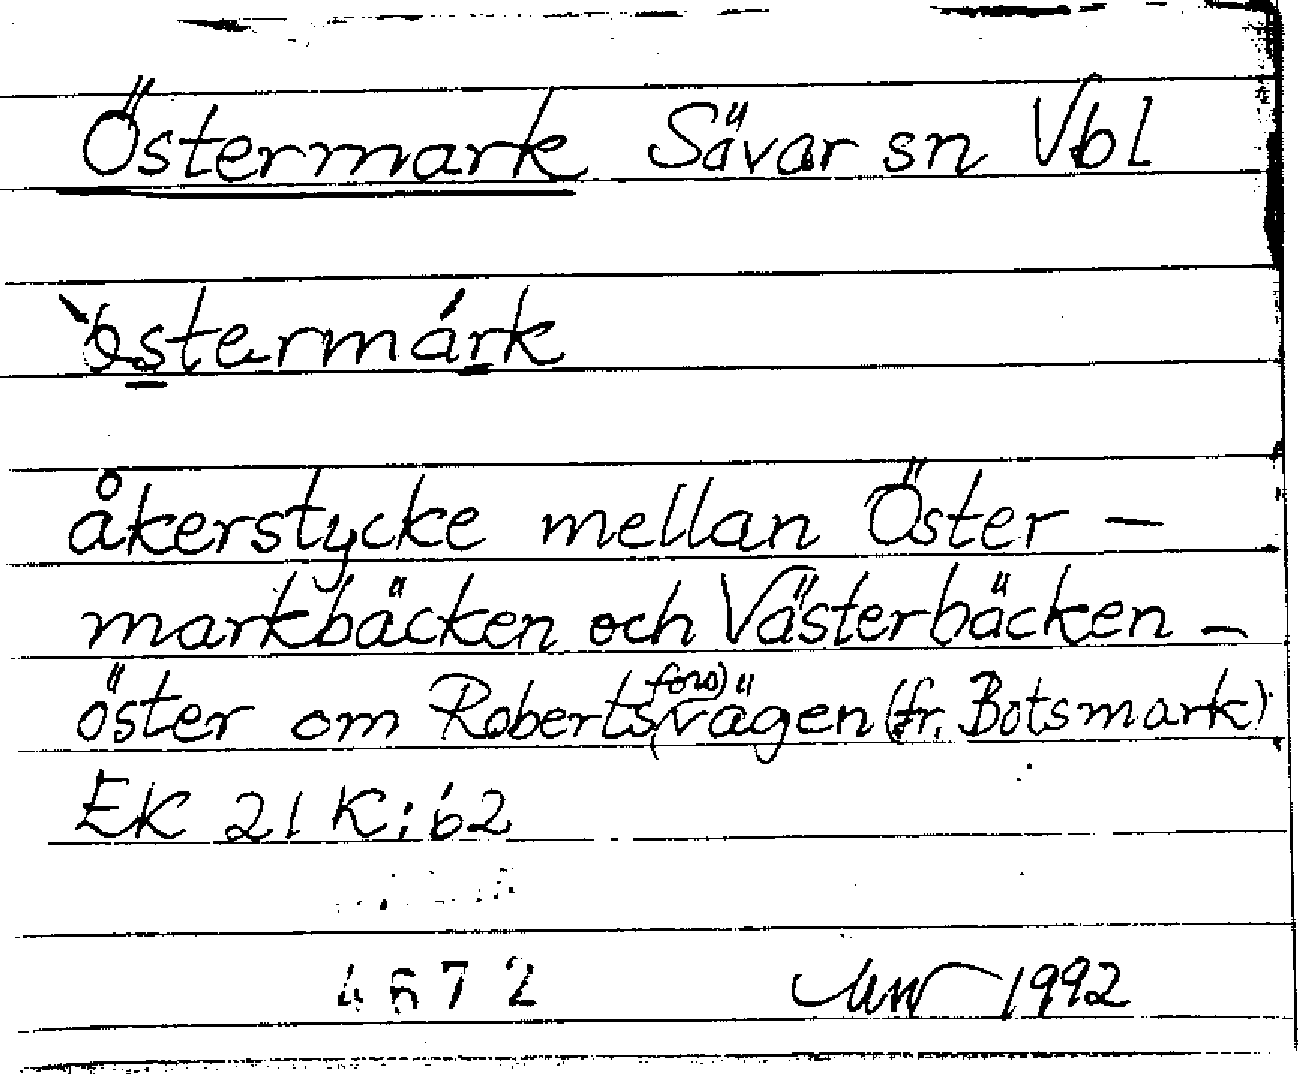 Östermark Sävar sn Vbl
`östermárk
åkerstycke mellan Öster-
markbäcken och Västerbäcken -
öster om Robertsfors)vägen (fr. Botsmark)
EK 21 K: 62
4672 1992